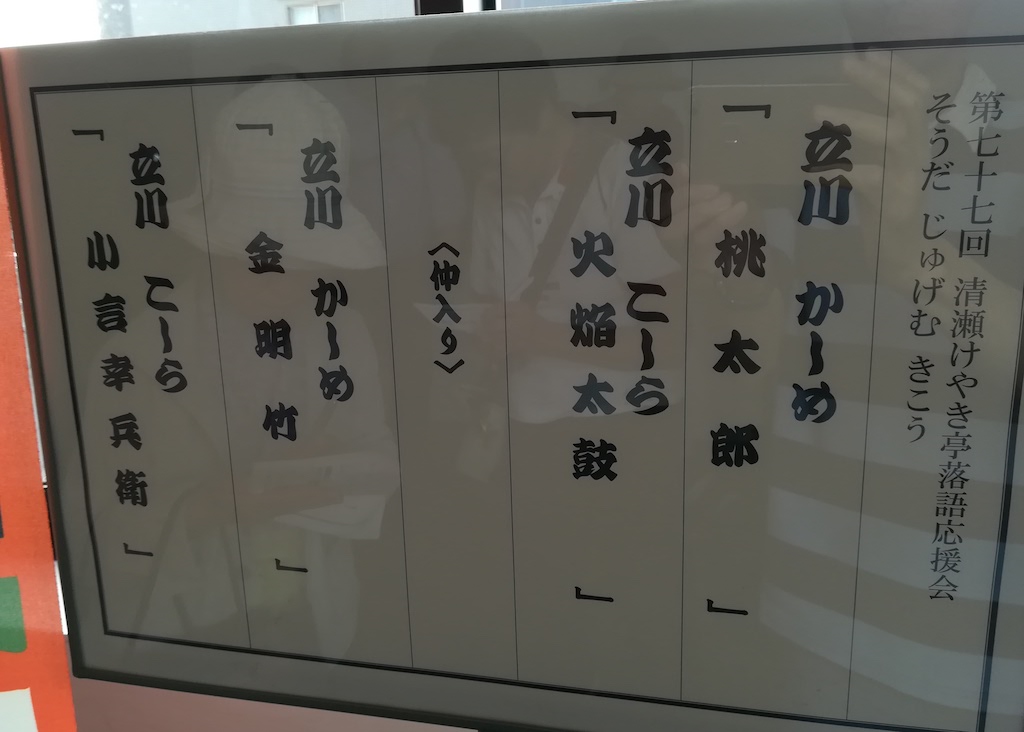 第七十七回 清瀬けやき亭落語応援会
そうだ じゅげむ きこう
立川 かーめ
「桃太郎」
立川 こーら
「火焔太鼓」
〈仲入り〉
立川 かーめ
「金明竹」
立川 こーら
「小言幸兵衛」